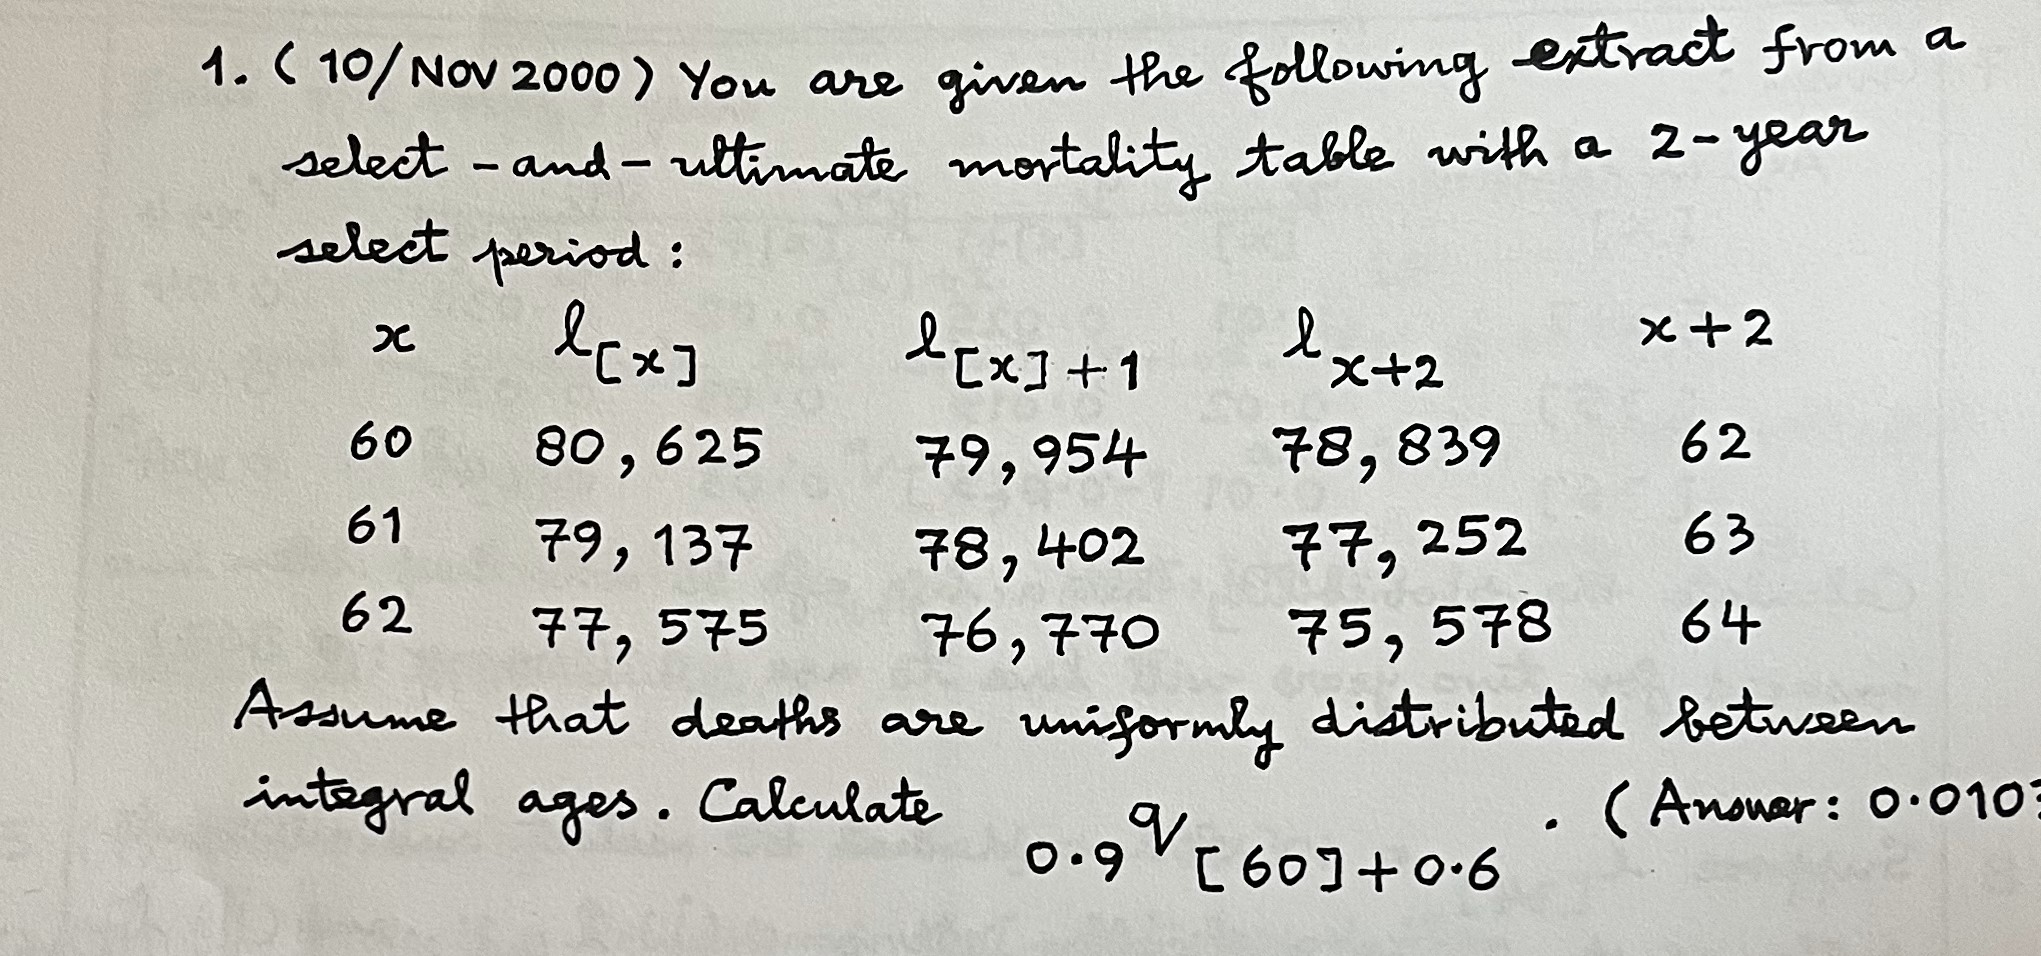 1. (10/Nov 2000) You are given the following extract from a
select-and-ultimate mortality table with a 2-year
select period:
x l[x] l[x]+1 lx+2 x+2
60 80,625 79,954 78,839 62
61 79,137 78,402 77,252 63
62 77,575 76,770 75,578 64
Assume that deaths are uniformly distributed between
integral ages. Calculate 0.9q[60]+0.6. (Answer: 0.010